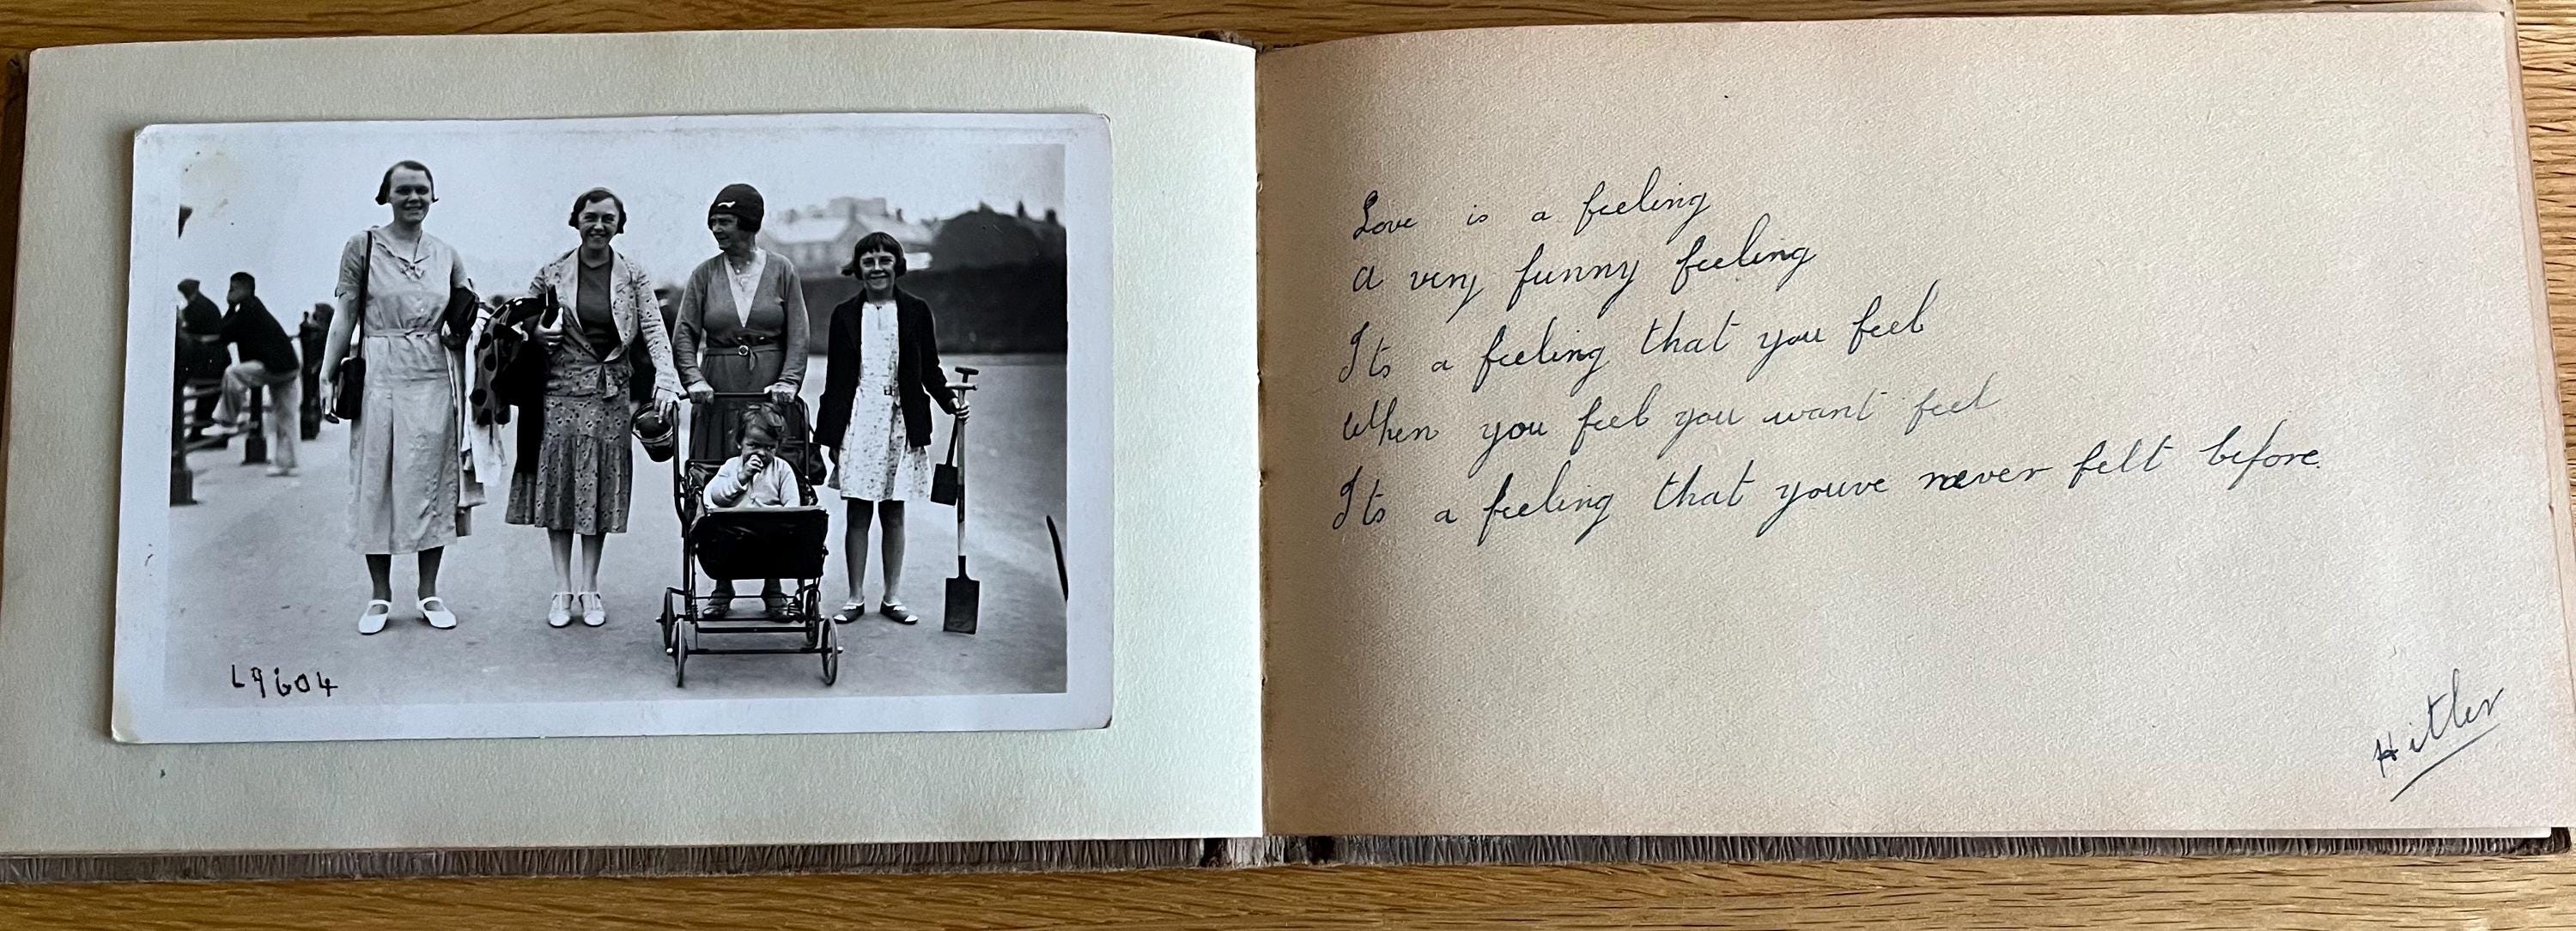 L9604
Love is a feeling
A very funny feeling
Its a feeling that you feel
When you feel you want feel
Its a feeling that youve never felt before.
Hitler